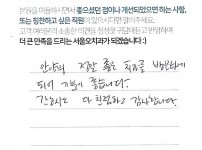 본원을 이용하시면서 좋으셨던 점이나 개선되었으면 하는 사항,
또는 칭찬하고 싶은 직원이 있으시면 알려주세요.
고객 여러분의 소중한 의견을 반영하여
더 큰 만족을 드리는 서울오치과가 되겠습니다 :)
안양의 정말 좋은 치과를 발견하게
되어 기쁘고 좋습니다.
간호사도 다 친절하고 감사합니다.